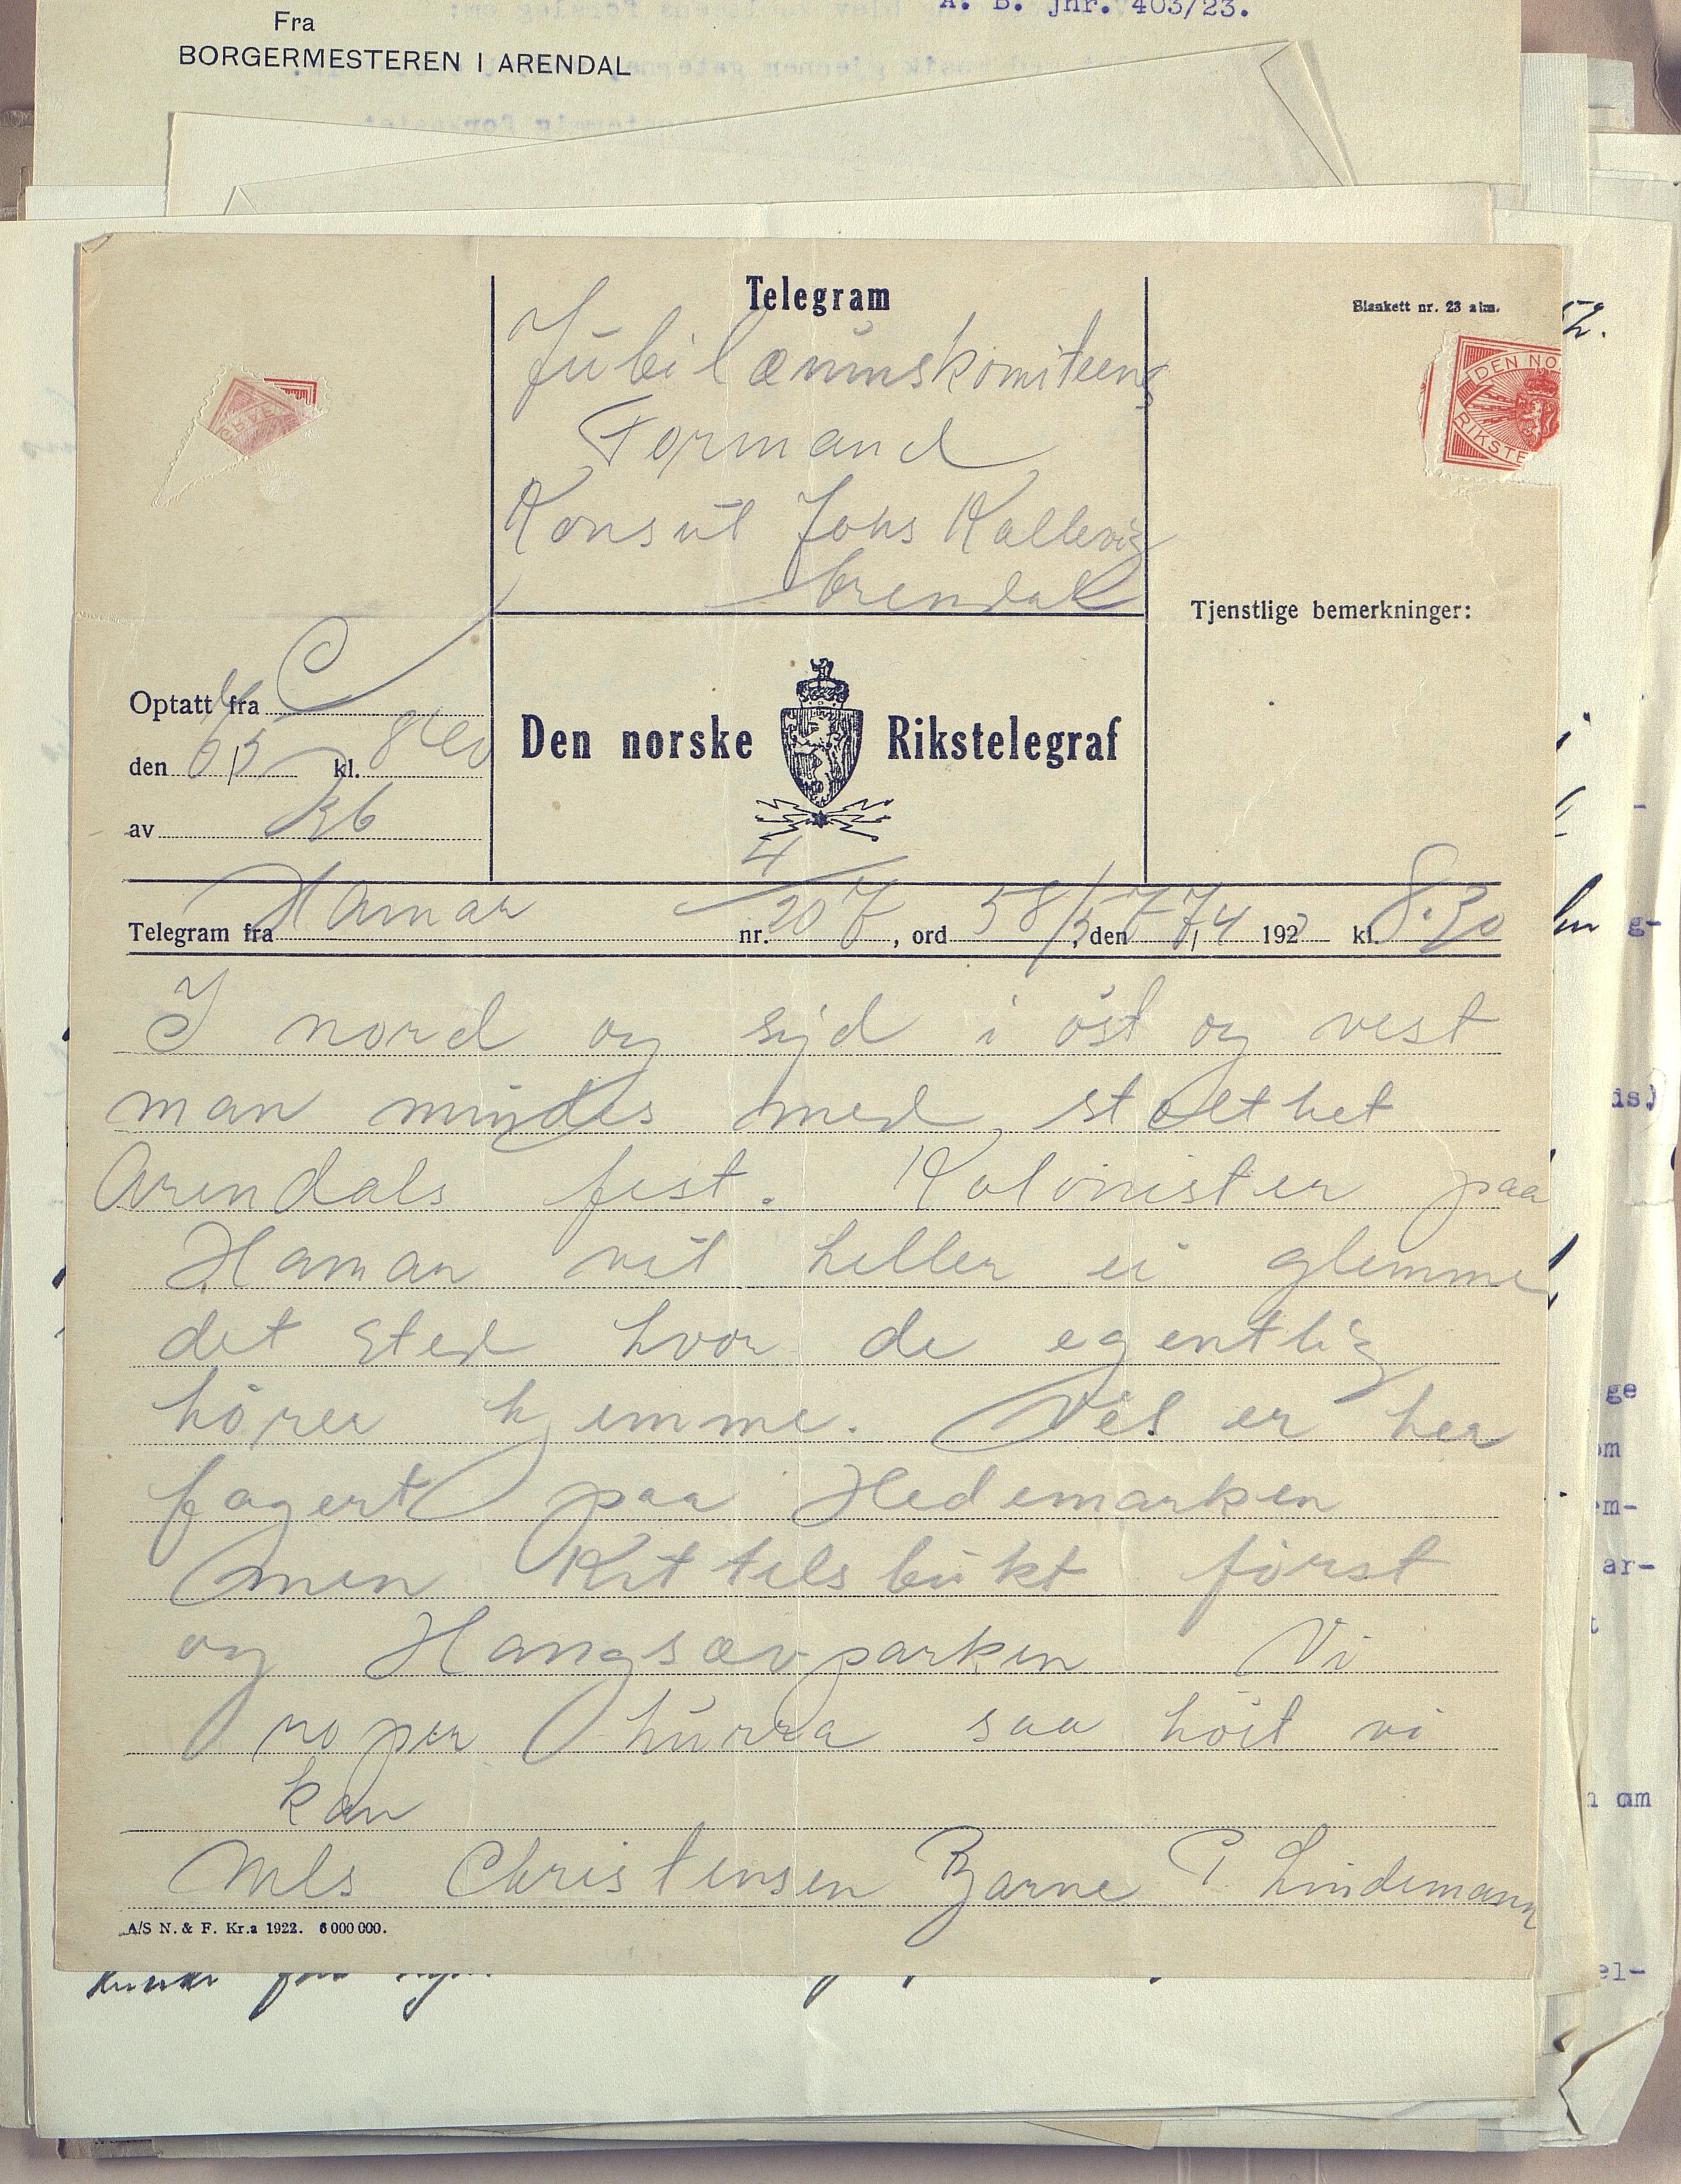 Fra
BORGERMESTEREN I ARENDAL
A. B. jnr. 403/23.
Telegram
Blankett nr. 23 alm.
Jubilæumskomiteens
Formand
Konsul Johs Kallevig
Arendal
DEN NO
RIKSTE
Tjenstlige bemerkninger:
Optatt fra C
den kl.
av
Den norske Rikstelegraf
Telegram fra Hamar nr. 207, ord 58/57, den 7/4 192 kl. 8.30
I nord og syd i öst og vest
man mindes med stolthet
Arendals fest. Kolonister paa
Hamar vil heller ei glemme
det sted hvor de egentlig
hörer hjemme. Vel er her
fagert paa Hedemarken
men Kittelsbukt först
og Hangsævparken Vi
roper hurra saa höit vi
kan
Nils Christensen Bjarne P Lindemann
A/S N. & F. Kr.a 1922. 6 000 000.
is)
ge
om
em-
ar-
t
n om
el-